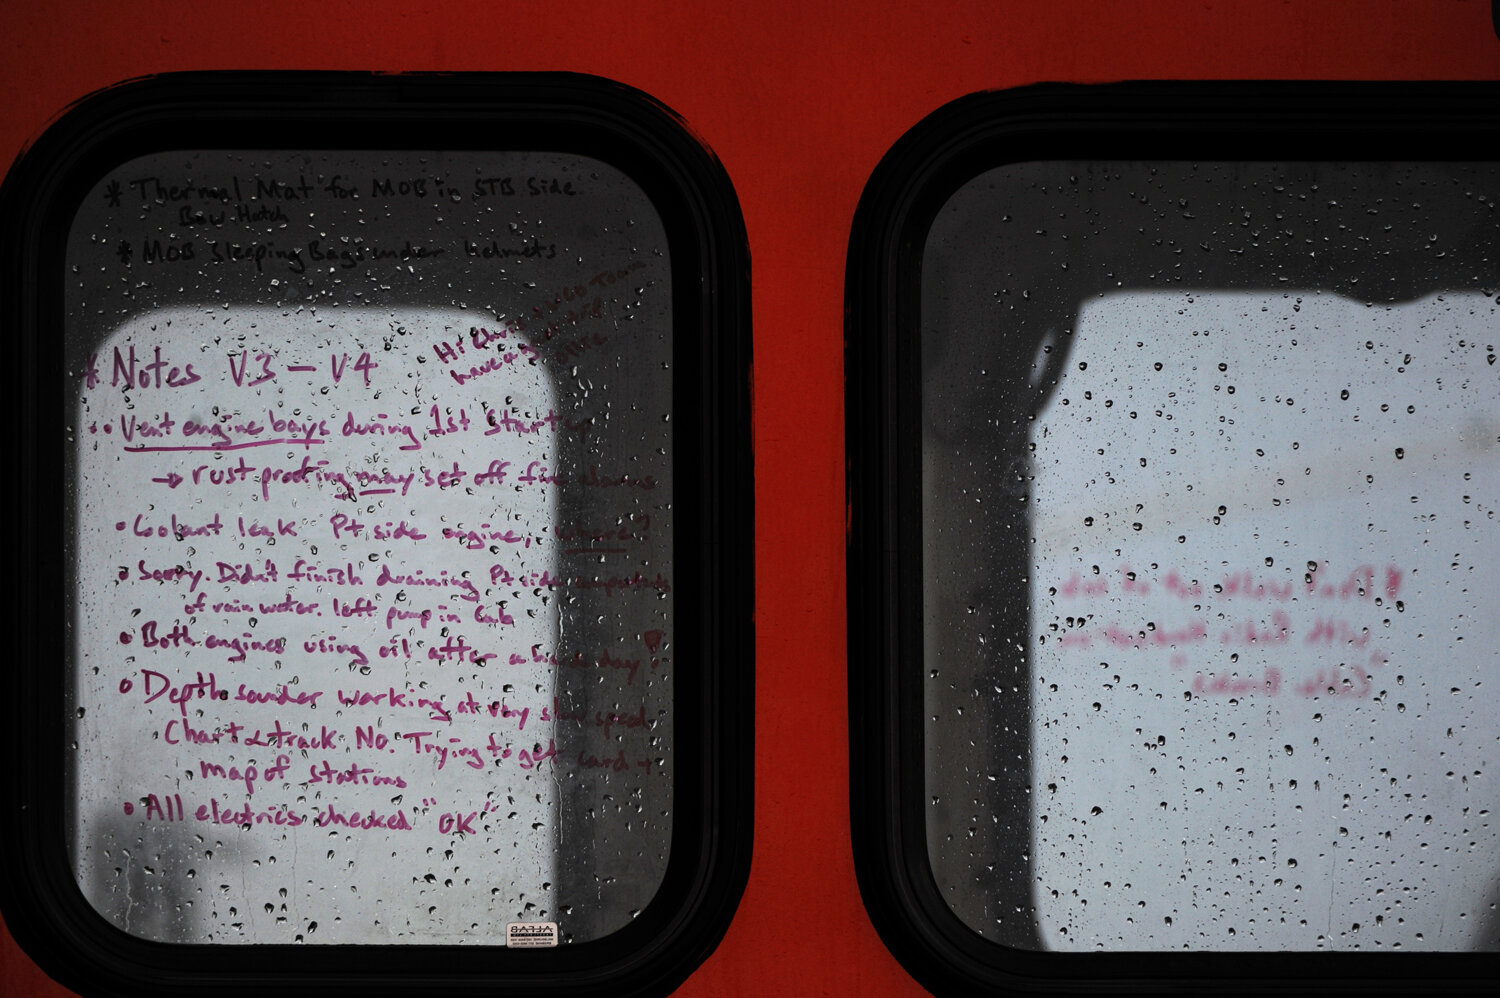 * Thermal Mat for MOB in STB Side
Bow Hatch
* MOB Sleeping Bags under helmets
Hi Chris
have a
* Notes V3 – V4
• Vent engine bays during 1st Start up
→ rust proofing may set off fire alarms
• Coolant leak Pt side engine, where?
• Sorry. Didn't finish draining Pt side compartments
of rain water. left pump in Cab
• Both engines using oil after a hard day!
• Depth sounder working at very slow speed
Chart & track No. Trying to get card +
map of stations
• All electrics checked "OK"
* Don't walk out of cab
with